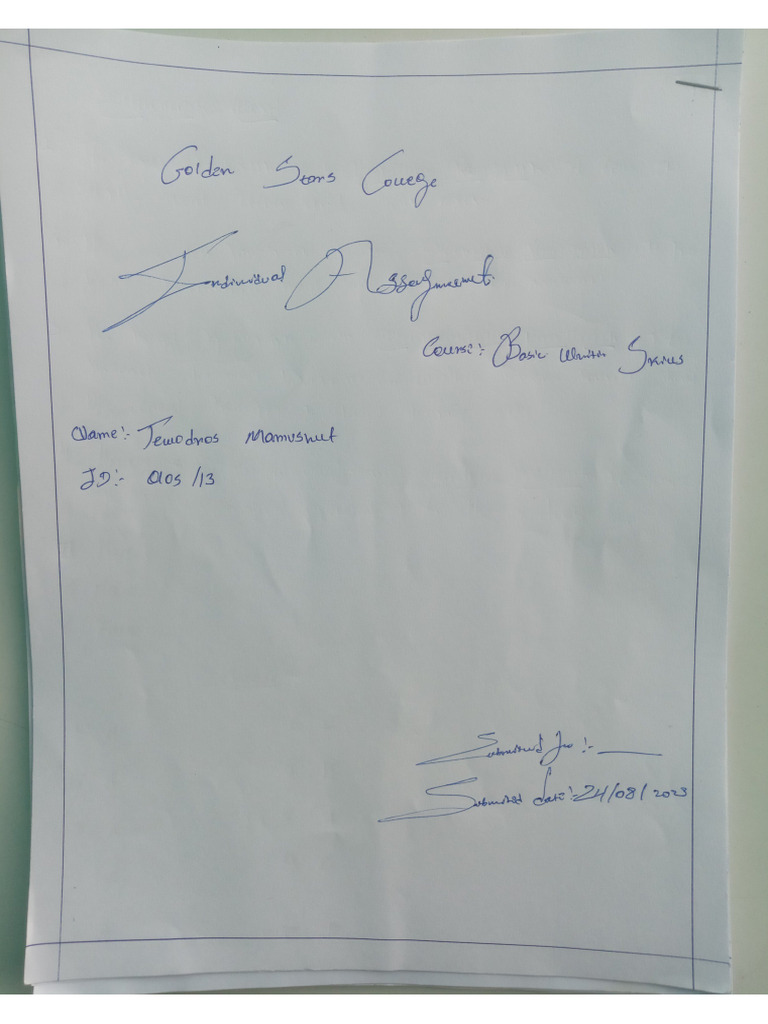 Golden Stars College
Individual Assagnment
Course:- Basic Writin Skills
Name:- Tewodros Mamushet
ID:- 0105/13
Submitted To:-
Submitted date:- 24/08/2023